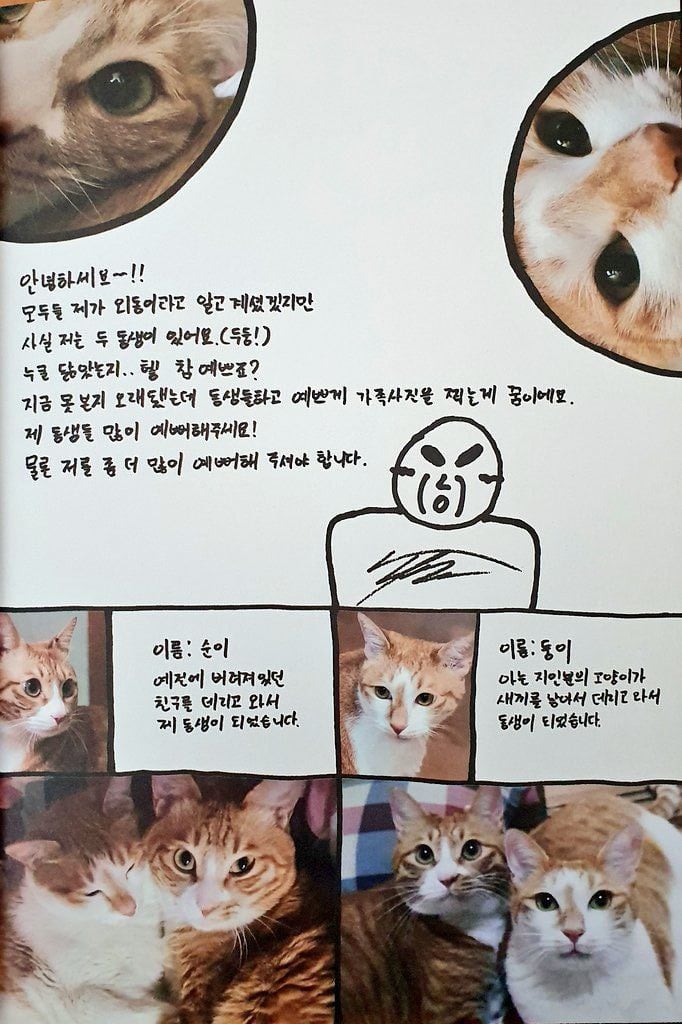 안녕하세브~!!
모두들 제가 외동이라고 알고 계셨겠지만
사실 저는 두 동생이 있어요.(두둥!)
누굴 닮았는지.. 헿 참 예쁘죠?
지금 못 본지 오래됐는데 동생들하고 예쁘게 가족사진을 찍는게 꿈이에요.
제 동생들 많이 예뻐해주세요!
물론 저를 좀 더 많이 예뻐해 주셔야 합니다.
이름: 순이
예전에 버려져 있던
친구를 데리고 와서
제 동생이 되었습니다.
이름: 둥이
아는 지인분의 고양이가
새끼를 낳아서 데리고 와서
동생이 되었습니다.